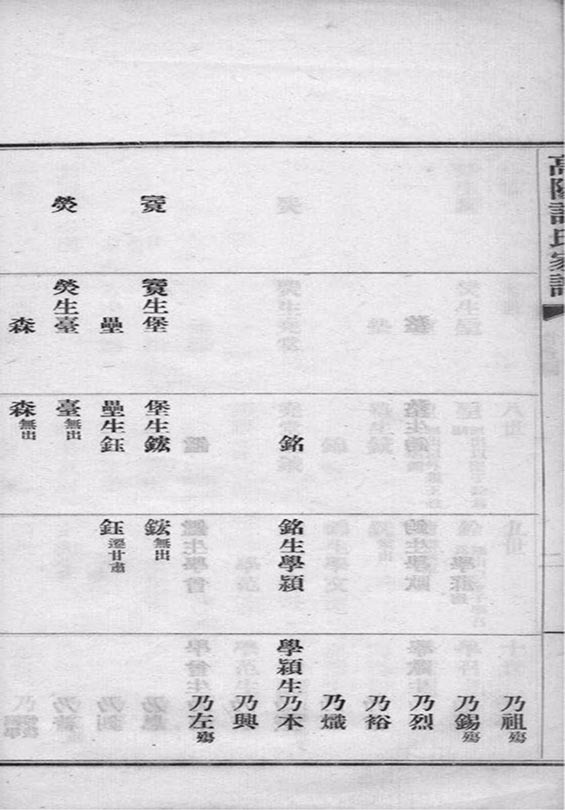 高陽許氏家譜
熒
生堡
壘
熒生臺
森
銘
堡生鋐
壘生鈺
臺無出
森無出
銘生學穎
鋐無出
鈺遷甘肅
乃祖殤
乃錫殤
乃烈
乃裕
乃熾
學穎生乃本
乃興
乃左殤